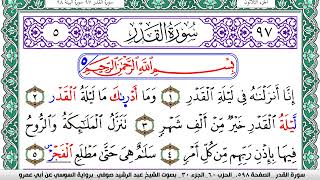 ٥ سُورَةُ القَدْرِ ٩٧
بِسْمِ اللَّهِ الرَّحْمَٰنِ الرَّحِيمِ
إِنَّا أَنزَلْنَٰهُ فِي لَيْلَةِ الْقَدْرِ ١ وَمَا أَدْرِىٰكَ مَا لَيْلَةُ الْقَدْرِ ٢
لَيْلَةُ الْقَدْرِ خَيْرٌ مِّنْ أَلْفِ شَهْرٍ ٣ تَنَزَّلُ الْمَلَٰٓئِكَةُ وَالرُّوحُ
فِيهَا بِإِذْنِ رَبِّهِم مِّن كُلِّ أَمْرٍ ٤ سَلَٰمٌ هِيَ حَتَّىٰ مَطْلَعِ الْفَجْرِ ٥
سورة القدر الصفحة ٥٩٨ـ الحزب ٦٠ـ الجزء ٣٠ـ بصوت الشيخ عبد الرشيد صوفي برواية السوسي عن أبي عمرو